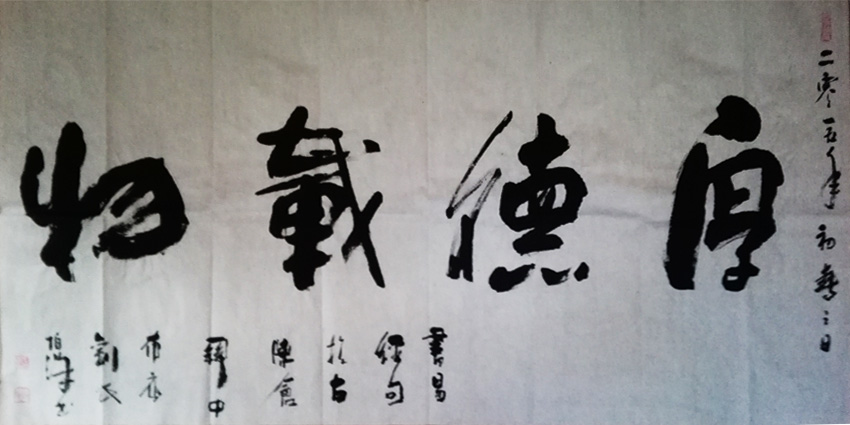 二零一五年初春之日
厚德載物
書易
經句
於古
陳倉
關中
布衣
劉氏
书